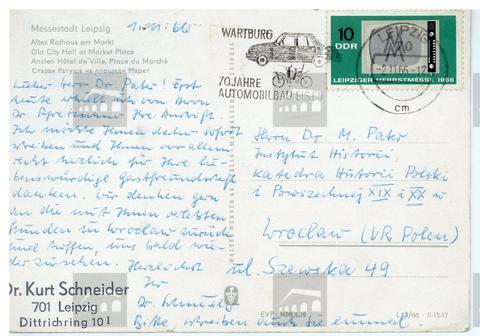 Messestadt Leipzig
Altes Rathaus am Markt
Old City Hall at Market Place
Ancien Hôtel de Ville, Place du Marché
Старая Ратуша на площади Маркт
1.11.66
Lieber Herr Dr. Pater! Erst
heute erhielt ich von Herrn
Dr. Ihre Anschrift.
Ich möchte Ihnen daher sofort
schreiben und Ihnen vor allem
recht herzlich für Ihre lie-
benswürdige Gastfreundschaft
danken. Wir denken gern
an die mit Ihnen verlebten
Stunden in Wroclaw zurück
und hoffen, uns bald wie-
der zu sehen. Herzlichst
Ihr
Dr. Schneider
Bitte schreiben auch Sie einmal.
Dr. Kurt Schneider
701 Leipzig
Dittrichring 10 I
WARTBURG
70 JAHRE
AUTOMOBILBAU EISENACH
10
DDR
LEIPZIGER HERBSTMESSE 1966
LEIPZIG
66-12
cm
Herrn Dr. M. Pater
Instytut Historii,
Katedra Historii Polski
i Powszechnej XIX i XX w
Wrocław (VR. Polen)
ul. Szewska 49
EVP: MDN 0,20
II-15-17